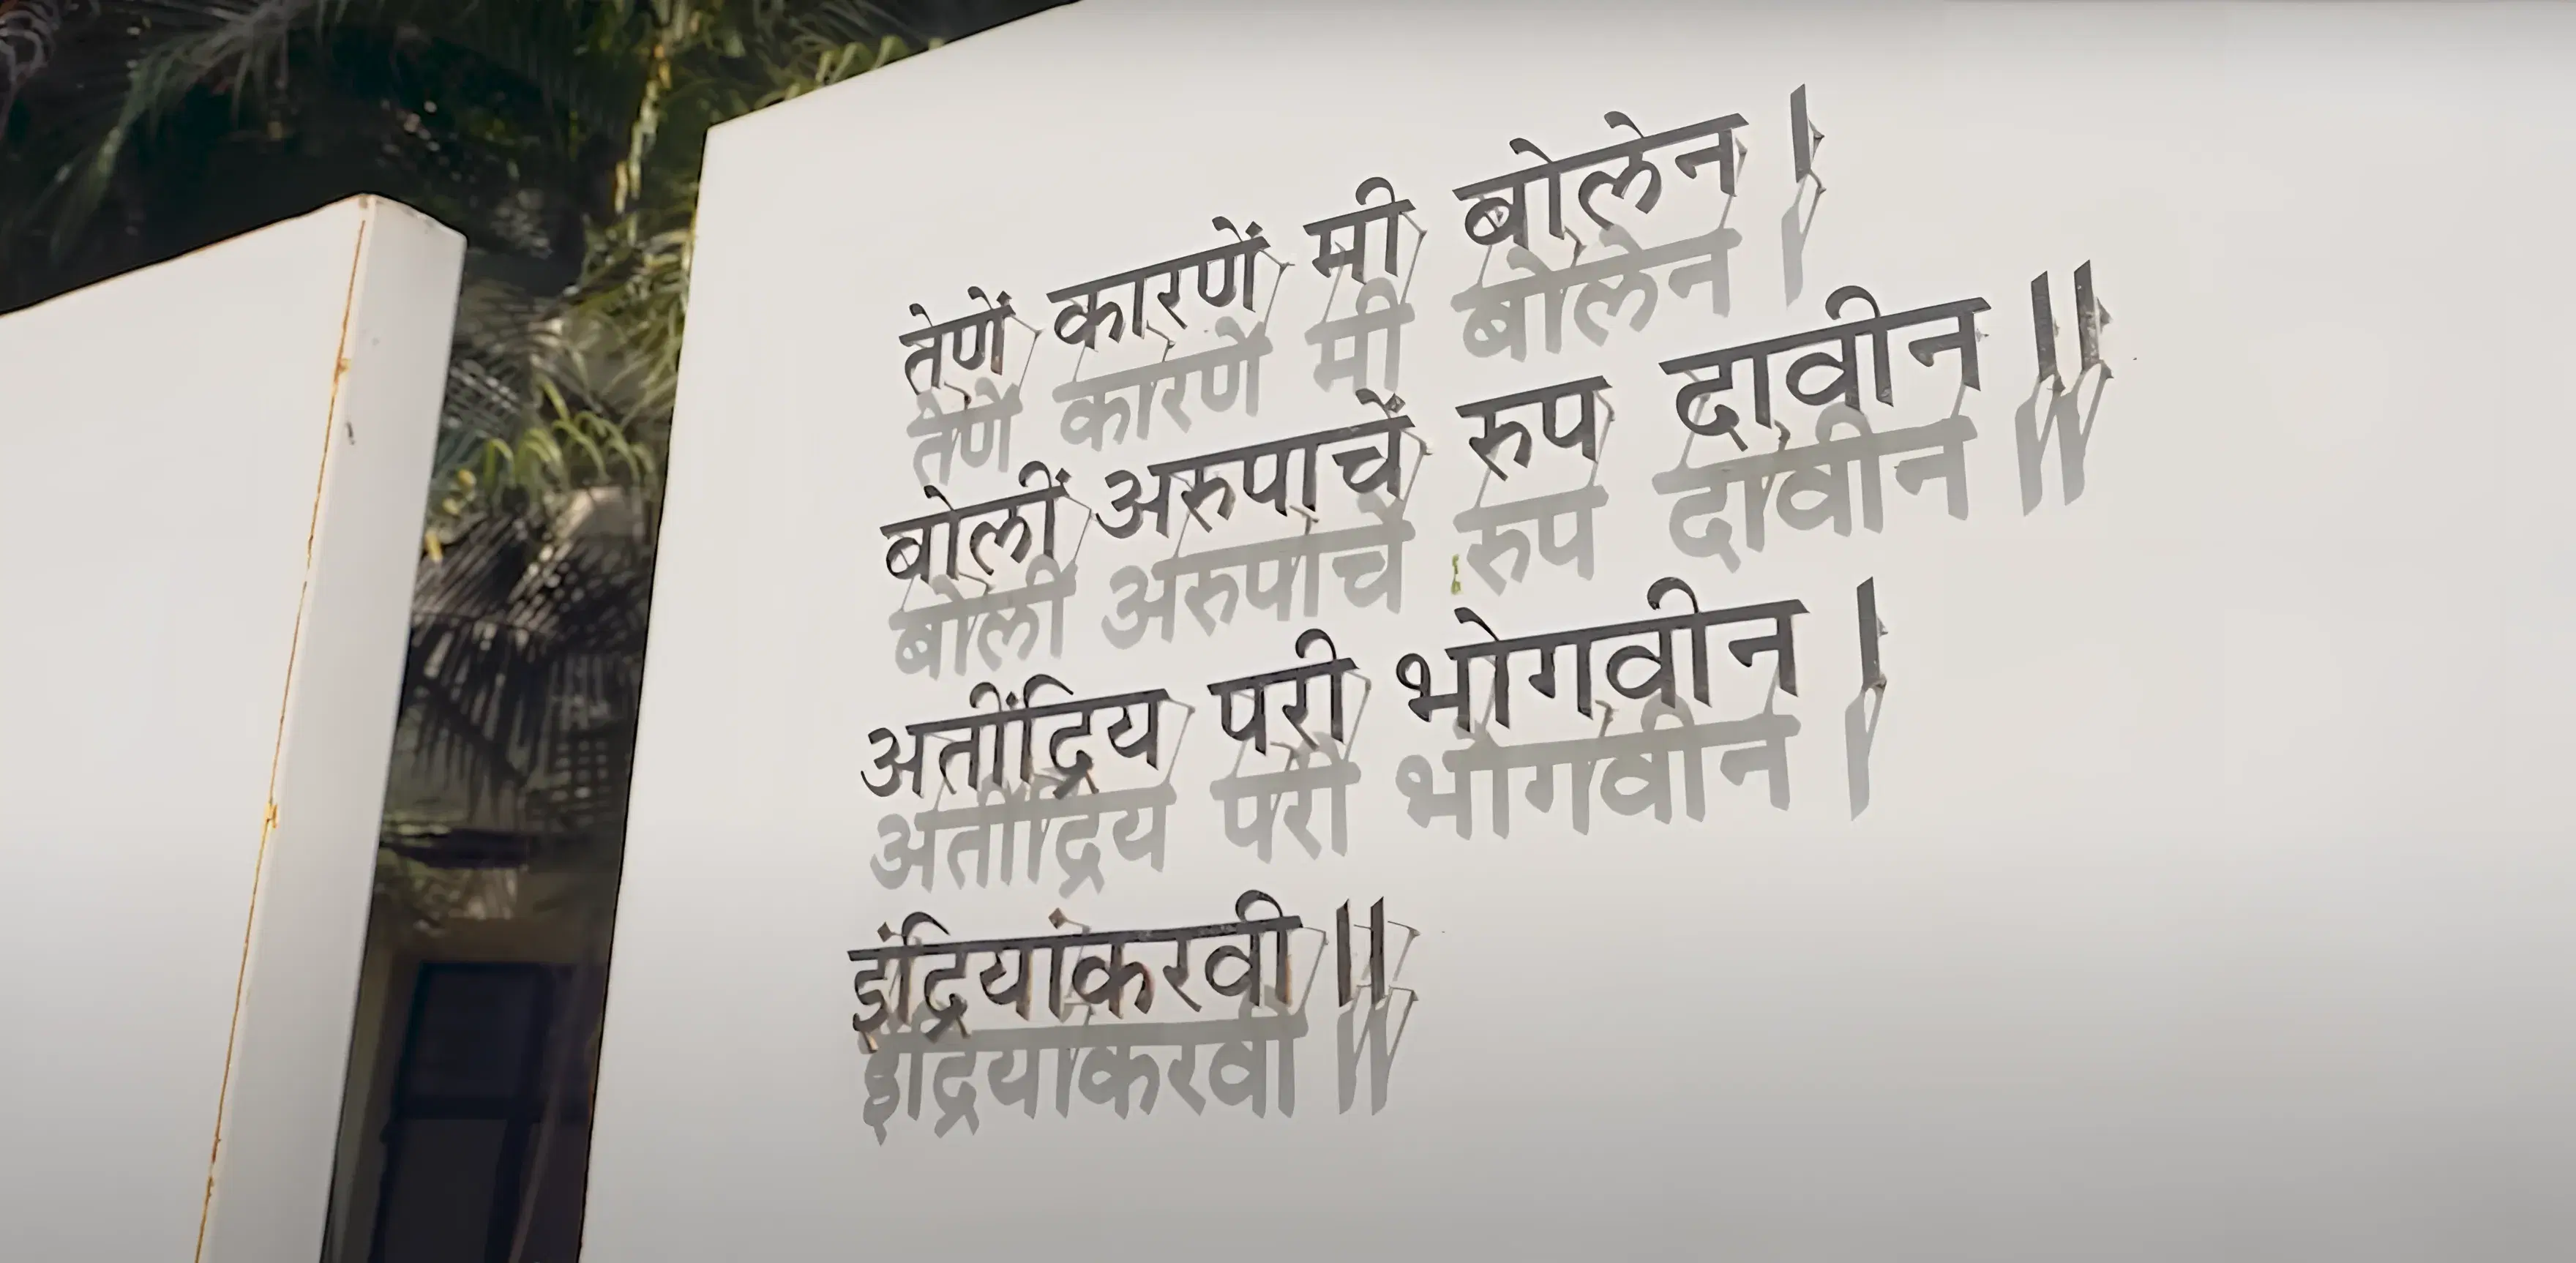 तेणें कारणें मी बोलेन ।
बोलीं अरुपाचें रुप दावीन ॥
अतींद्रिय परी भोगवीन ।
इंद्रियांकरवी ॥